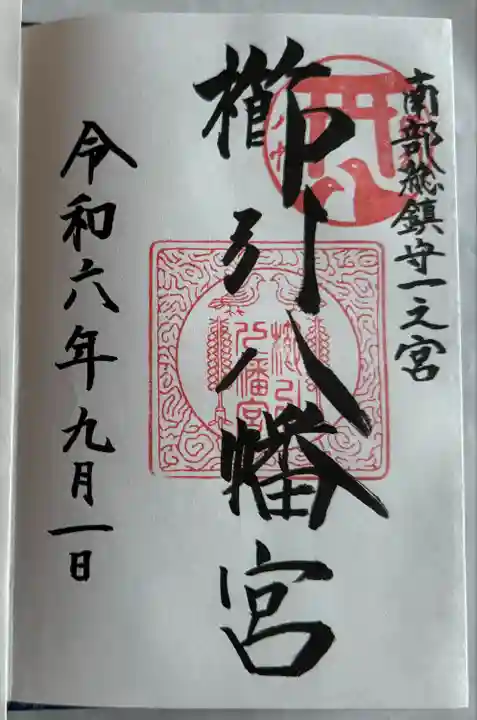 南部総鎮守一之宮
櫛引八幡宮
令和六年九月一日
櫛引
八幡宮